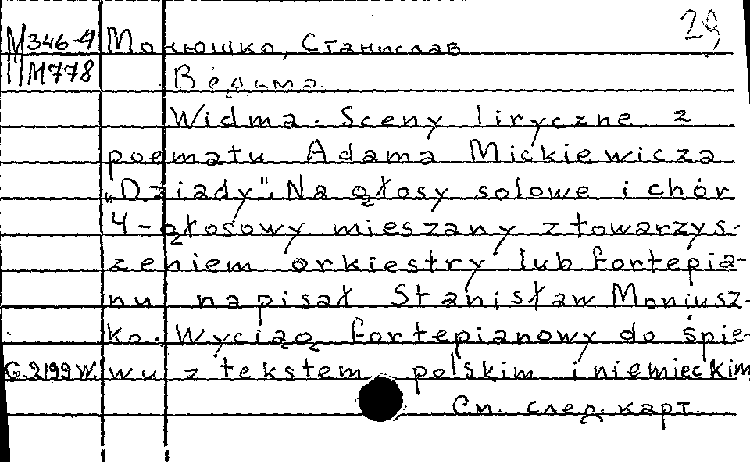 29
М346-4 Монюшко, Станислав
М778 Ведьма.
Widma. Sceny liryczne z
poematu Adama Mickiewicza
„Dziady". Na głosy solowe i chór
4-głosowy mieszany z towarzys-
zeniem orkiestry lub fortepia-
nu napisał Stanisław Moniusz-
ko. Wyciąg fortepianowy do śpie-
G.2199 W. wu z tekstem polskim i niemieckim
См. след. карт.